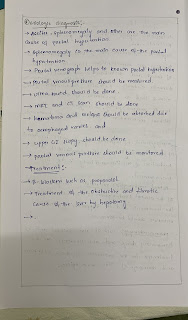 Etiologic diagnostic:
→ Ascites, splenomegaly and are the main
cause of portal hypertention
→ splenomegaly is the main cause of the portal
hypertension
→ Portal venograph helps to known portal hypertention
→ Portal venous pressure should be monitored
→ ultra sound should be done
→ MRI and CT scan should be done
→ hematemesis and should be observed due
to oesophageal varices and
→ upper GI should be done
→ portal venous pressure should be monitored
Treatment:
→ B-blockers such as propanolol
→ Treatment of the obstructive and fibrotic
cause of the liver by
→